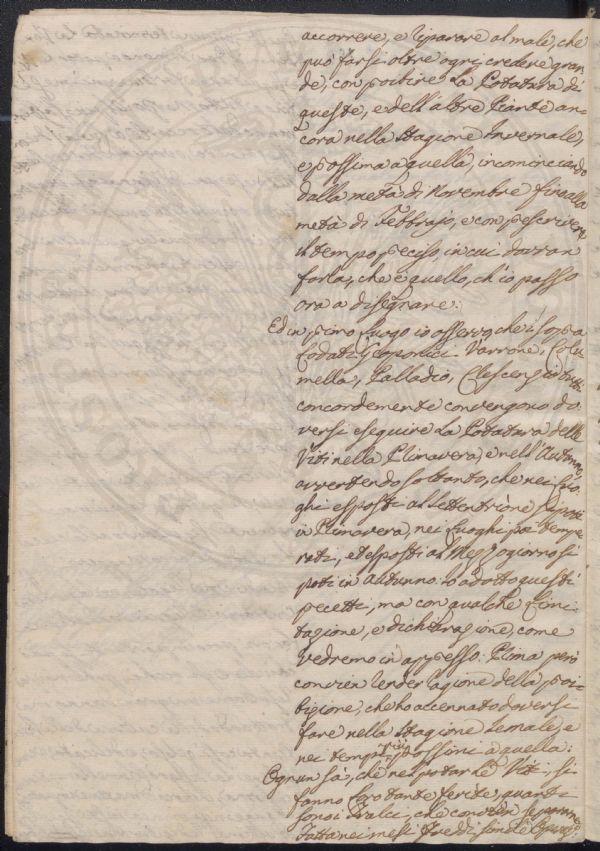 accorrere, e riparare al male, che
può farsi oltre ogni credere gran=
de, con proibire la Potatura di
queste, e dell'altre Piante an=
cora nella Stagione Invernale,
e prossima a quella, incominciando
dalla metà di Novembre fino alla
metà di Febbrajo, e con prescrivere
il tempo preciso, in cui dovran
farla, che è quello, ch'io passo
ora a disegnare:
Ed in primo luogo io osservo, che i sopra
Lodati Geoponici Varrone, Colu
mella, Palladio, Crescenzio tutti
concordemente convengono do
versi eseguire la Potatura delle
Viti nella Primavera, e nell'Autunno,
avvertendo soltanto, che nei luo
ghi esposti al Settentrione si poti
in Primavera, nei luoghi poi tempe
rati, et esposti al Mezzogiorno si
poti in Autunno. Io adotto questi
precetti, ma con qualche limi
tazione, e dichiarazione, come
vedremo in appresso. Prima però
convien render ragione della proi=
bizione, che ho accennato doversi
fare nella Stagione Iemale, e
nei tempi più prossimi a quella:
Ognun sà, che nel potar le Viti, si
fanno loro tante ferite, quanti
sono i Tralci, che convien
nei mesi freddi